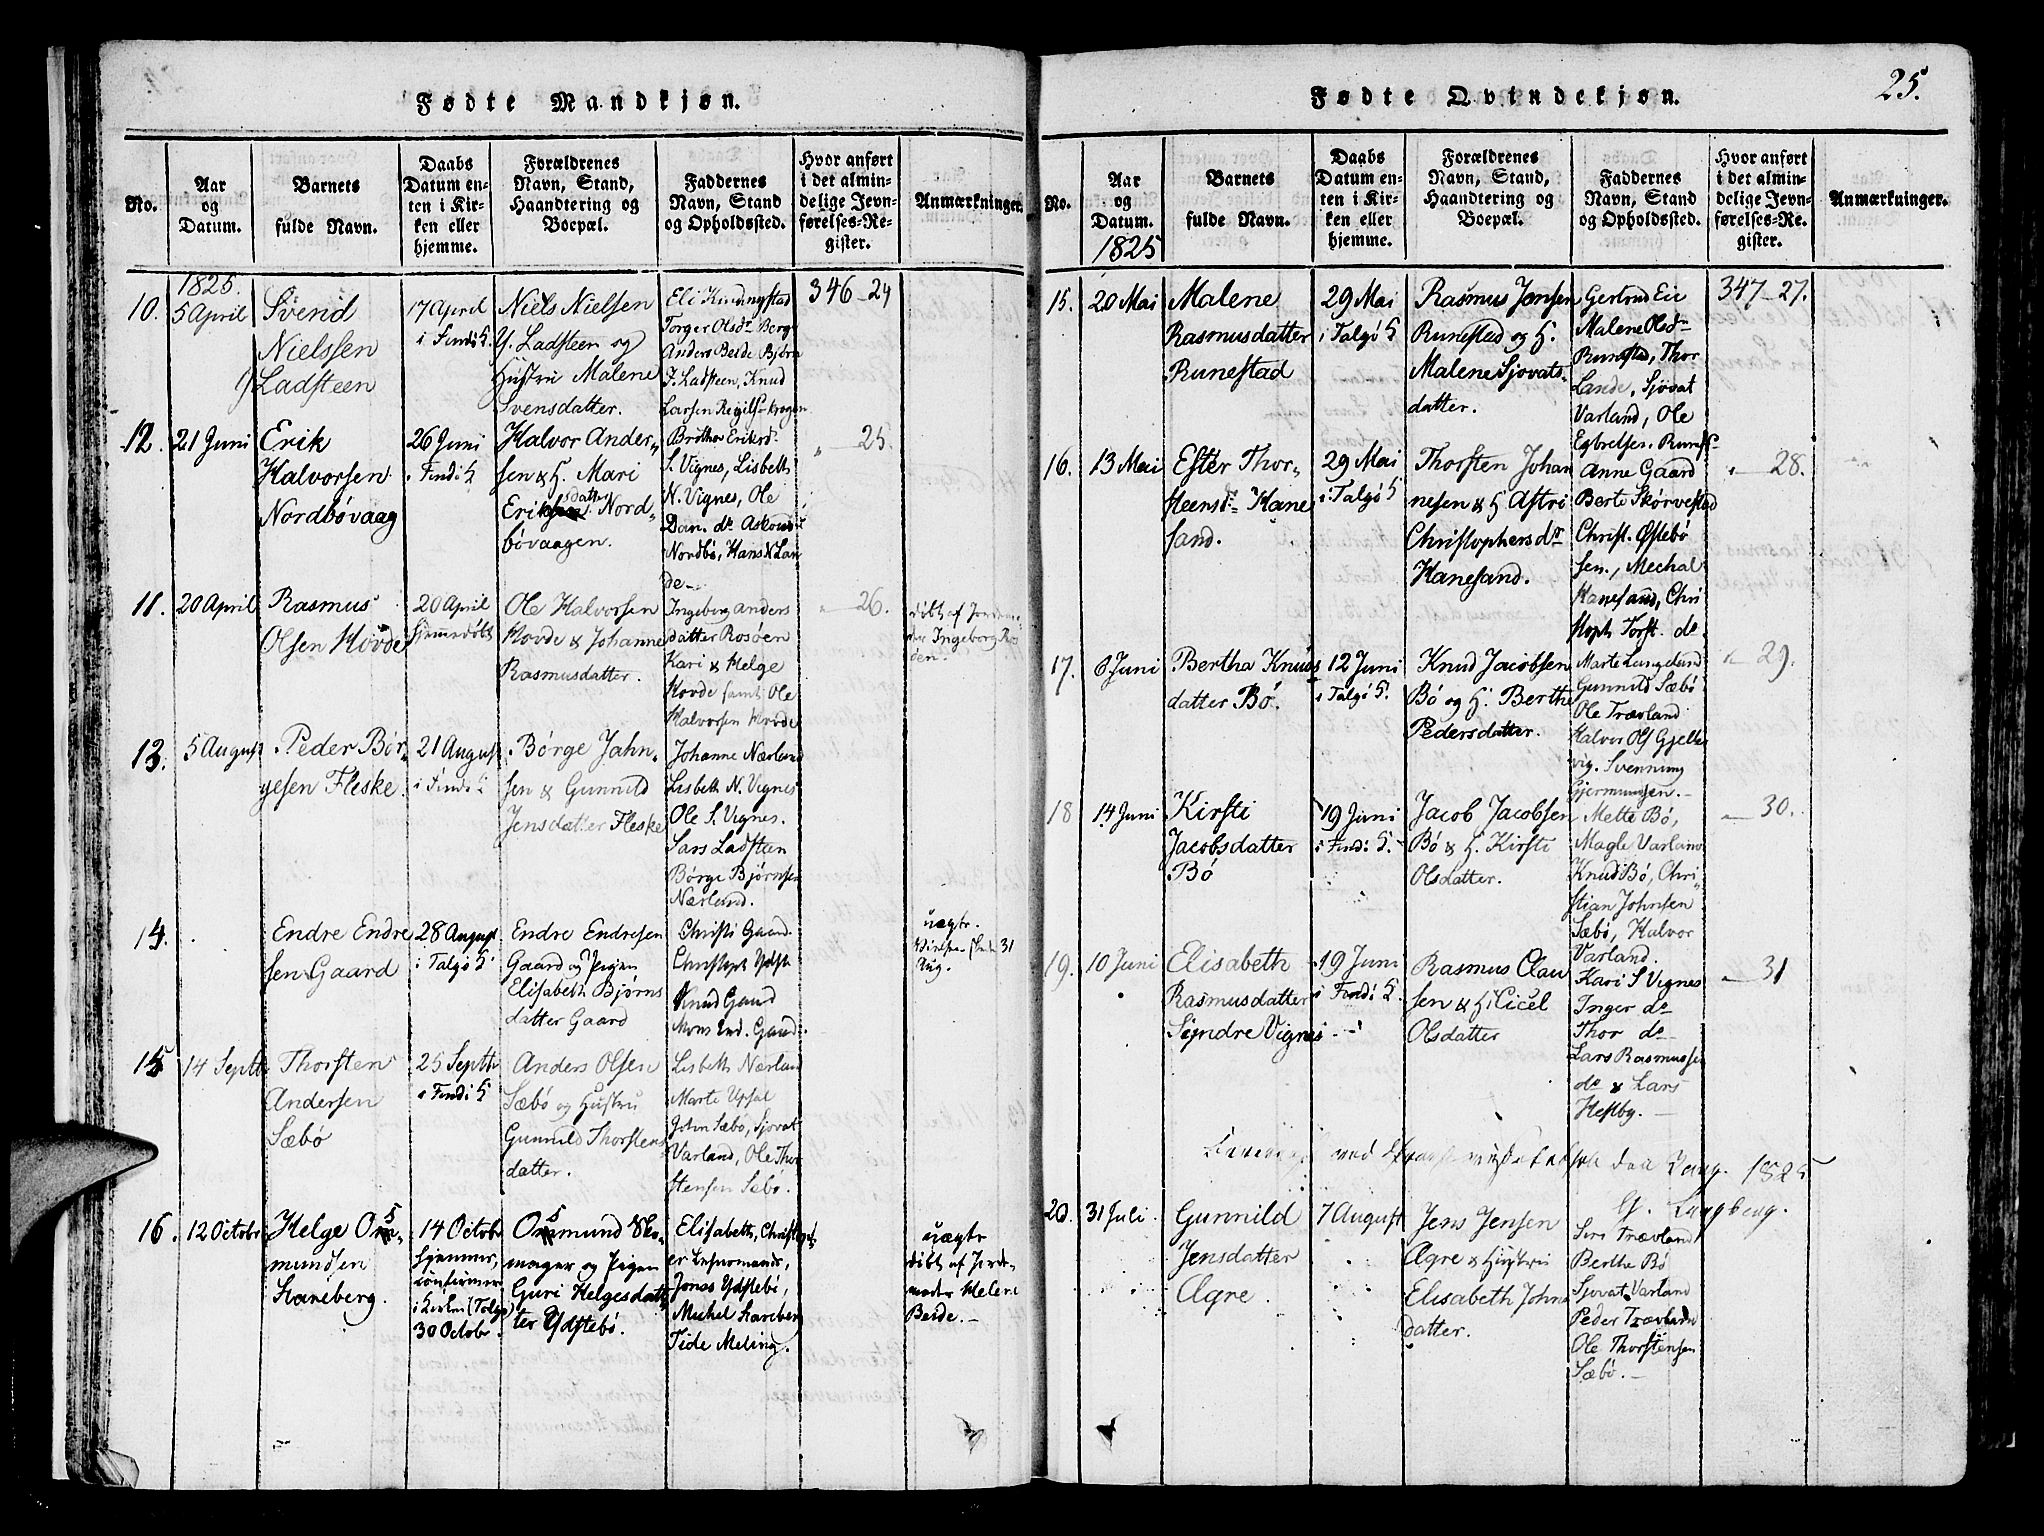 Fødte Mandkjøn.
No.
Aar og Datum.
Barnets fulde Navn.
Daabs Datum enten i Kirken eller hjemme.
Forældrenes Navn, Stand, Haandtering og Boepæl.
Faddernes Navn, Stand og Opholdssted.
Hvor anført i det almindelige Jevnførelses-Register.
Anmærkninger.
1825.
10.
5 April
Svend
Nielssen
Ladsteen
17 April
i Findö K
Niels Nielsen
Y. Ladsteen og
Hustru Malene
Svensdatter.
Torger Olsdr Berg
Anders Beide Bjørn
J. Ladsteen, Knud
Larsen
346 - 24
12.
21 Juni
Erik
Halvorsen
Nordbövaag
26 Juni
i Findö K
Halvor Ander-
sen & H. Mari
Eriksdatter Nord-
bövaagen.
S. Vignes, Lisbeth
N. Vignes, Ole
Dan. do
Nordbö, Hans N Lan
de
" - 25.
11.
20 April
Rasmus
Olsen Hovde
20 April
hjemmedöbt
Ole Halvorsen
Hovde & Johanne
Rasmusdatter.
Ingeborg Anders
datter Rosöen
Kari & Helge
Hovde samt Ole
Halvorsen Hovde
" - 26.
döbt af Jordemo-
der Ingeborg Ros
öen.
13.
5 August
Peder Bör-
gesen Fleske.
21 August
i Findö K
Börge Jahn-
sen & Gunnild
Jensdatter Fleske
Johanne Nærland
Lisbeth N. Vignes
Ole S. Vignes.
Lars Ladsteen
Börge Bjørnsen
Nærland.
14.
Endre Endre
sen Gaard
28 August
i Talgö K
Endre Endresen
Gaard og Pigen
Elisabeth Bjørns
datter Gaard
Christi Gaard
Christoph Ydst
Knud Gaard
Mons End. Gaard.
uægte.
31
Aug.
15
14 Septb
Thorsten
Andersen
Sæbö
25 Septb
i Findö K
Anders Olsen
Sæbö og Hustru
Gunnild Thorstens
datter.
Lisbeth Nærland
Marte Upsal
John Sæbö, Sjovat
Varland, Ole Thor
stensen Sæbö.
16.
12 Octobr
Helge Os-
mundsen
Hareberg.
14 Octobr
hjemme,
confirmer
i Kirken (Talgö)
30 Octobr.
Osmund Sko-
mager og Pigen
Guri Helgesdat-
ter Ydstebö.
Elisabeth,
Jonas Ydstebö,
Michel Hareberg
Tide Meling.
uægte
döbt af Jorde-
moder Helene
Beide.
25.
Fødte Qvindekjøn.
No.
Aar og Datum.
Barnets fulde Navn.
Daabs Datum enten i Kirken eller hjemme.
Forældrenes Navn, Stand, Haandtering og Boepæl.
Faddernes Navn, Stand og Opholdssted.
Hvor anført i det almindelige Jevnførelses-Register.
Anmærkninger.
1825
15.
20 Mai
Malene
Rasmusdatter
Runestad
29 Mai
i Talgö K
Rasmus Jensen
Runestad og H.
Malene Sjovats-
datter.
Gertrud Eie
Malene Olsdr
Runestad, Thor
Lande, Sjovat
Varland, Ole
Egbretsen. Runest
347 - 27.
16.
13 Mai
Ester Thor-
steensdr Hane
sand.
29 Mai
i Talgö K
Thorsten Johan
nesen & H Astri
Christophersdr
Hanesand.
Anne Gaard
Berte Skörvestad
Christ. Østebö
sen., Mechal
Hanesand, Chri
stoph Torst. do
" - 28.
17.
6 Juni
Bertha Knuds
datter Bö.
12 Juni
i Talgö K.
Knud Jacobsen
Bö og H. Berthe
Pedersdatter.
Marte Langelund
Gunnild Sæbö
Ole Trævland
Halvor Ols Gjelle
vig. Svennung
Gjermundsen.
" - 29.
18
14 Juni
Kirsti
Jacobsdatter
Bö
19 Juni
i Findö K.
Jacob Jacobsen
Bö & H. Kirsti
Olsdatter.
Mette Bö,
Magle Varland
Knud Bö, Chri-
stian Johnsen
Sæbö, Halvor
Varland.
" - 30.
19.
10 Juni
Elisabeth
Rasmusdatter
Syndre Vignes
19 Juni
i Findö K.
Rasmus Clau
sen & H Cicel
Olsdatter
Kari S Vignes
Inger do
Thor do
Lars Rasmussen
do & Lars
Hestby.
" - 31
1825
20.
31 Juli.
Gunnild
Jensdatter
Aegre
7 August
Jens Jensen
Aegre & Hustru
Elisabeth Johns
datter.
Siri Trævland
Berthe Bö
Sjovat Varland
Peder Trævland
Ole Thorstensen
Sæbö.